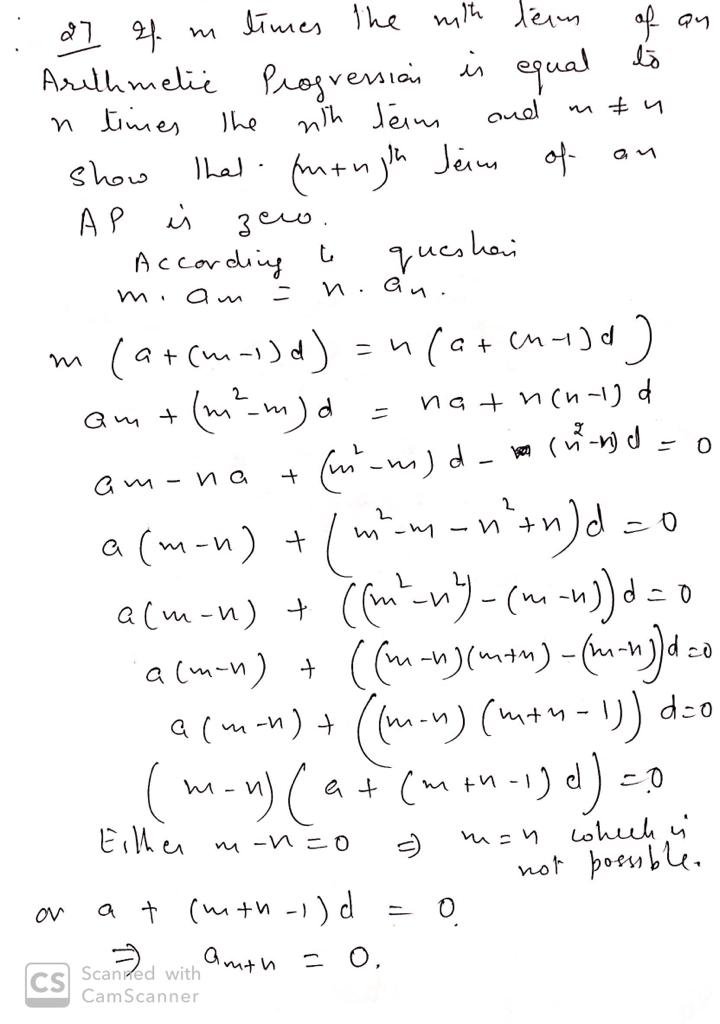 27 If m times the mth term of an
Arithmetic Progression is equal to
n times the nth term and m ≠ n
show that (m+n)th term of an
AP is zero.
According to question
m. am = n. an.
m (a+(m-1)d) = n (a+(n-1)d)
am + (m²-m)d = na + n(n-1)d
am - na + (m²-m)d - (n²-n)d = 0
a(m-n) + (m²-m-n²+n)d = 0
a(m-n) + ((m²-n²)-(m-n))d = 0
a(m-n) + ((m-n)(m+n)-(m-n))d = 0
a(m-n) + ((m-n)(m+n-1))d = 0
(m-n)(a+(m+n-1)d) = 0
Either m-n=0 ⇒ m=n which is
not possible.
or a + (m+n-1)d = 0
⇒ am+n = 0.
CS Scanned with
CamScanner